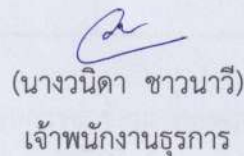 (นางวนิดา ชาวนาวี)
เจ้าพนักงานธุรการ